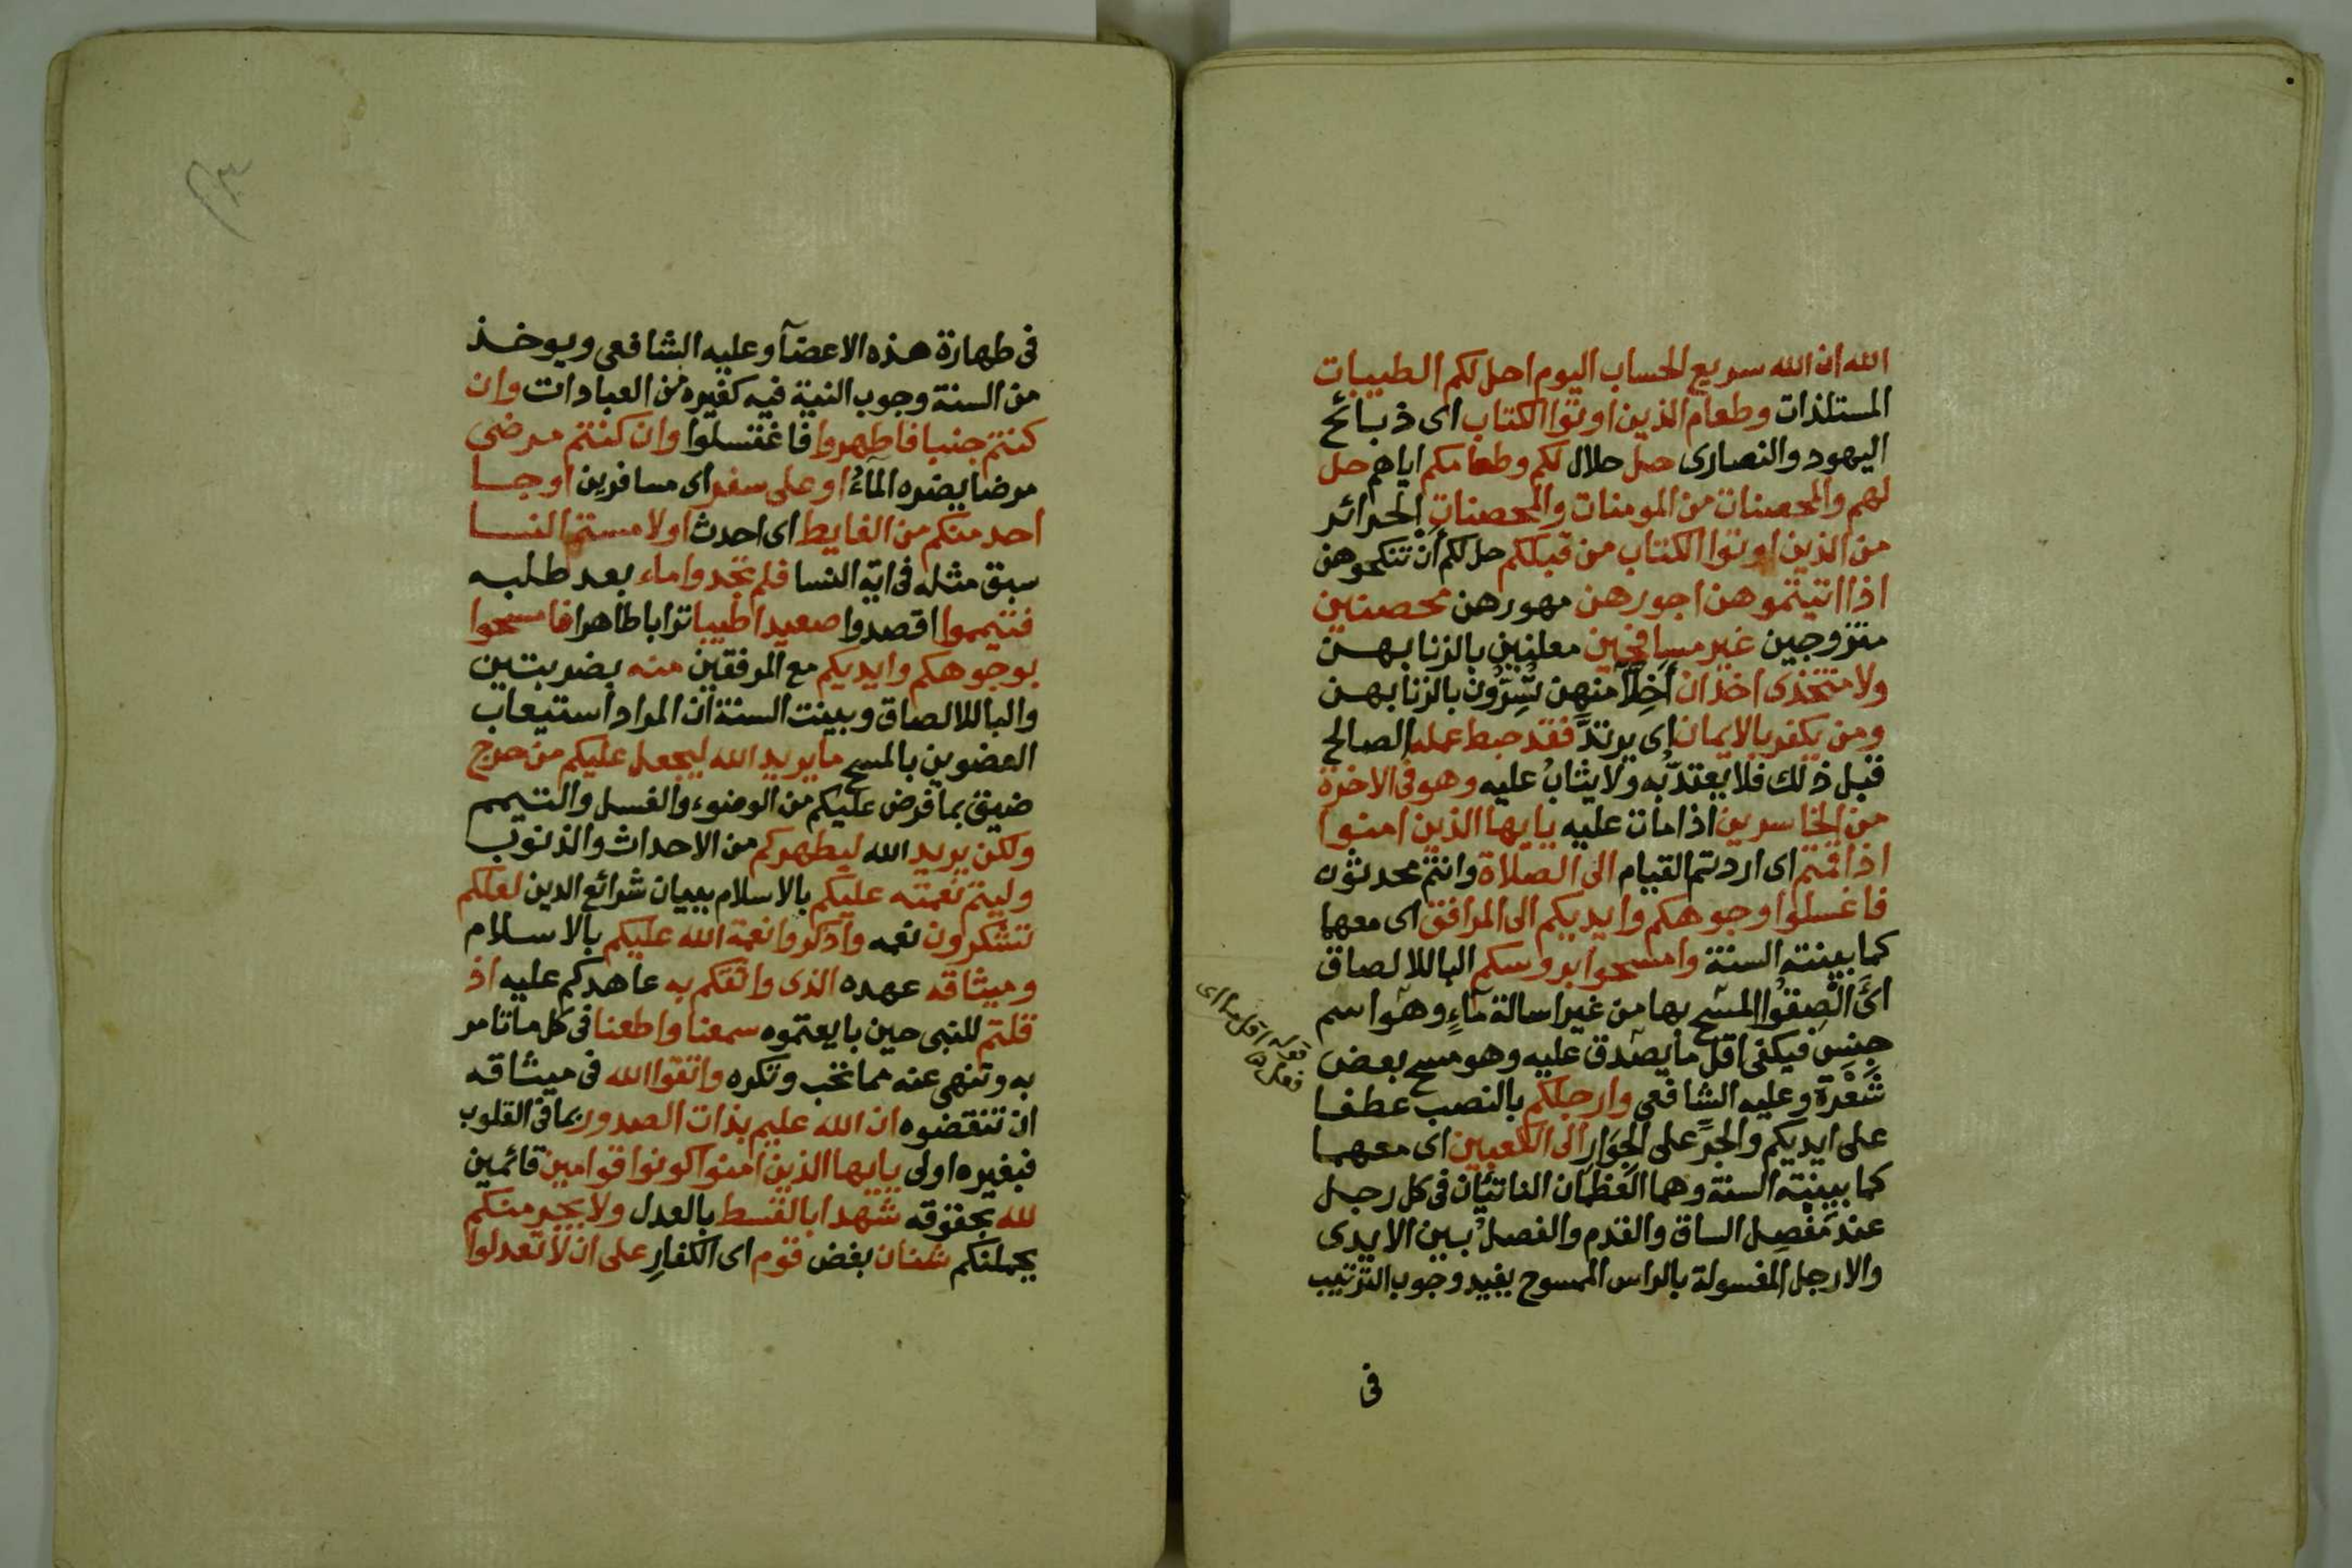 الله ان الله سريع الحساب اليوم احل لكم الطيبات
المستلذات وطعام الذين اوتوا الكتاب اى ذبائح
اليهود والنصارى حل حلال لكم وطعامكم اياهم حل
لهم والمحصنات من المومنات والمحصنات الحرائر
من الذين اوتوا الكتاب من قبلكم حل لكم أن تنكحوهن
اذا اتيتموهن اجورهن مهورهن محصنين
متزوجين غير مسافحين معلنين بالزنا بهن
ولا متخذى اخذان أخِلّآ منهن تُسِرُّون بالزنا بهن
ومن يكفر بالايمان اى يرتدَّ فقد حبط عمله الصالح
قبل ذلك فلا يعتدّبُه ولا يثابُ عليه وهو فى الاخرة
من الخاسرين اذا مات عليه يايها الذين امنوا
اذا قمتم اى اردتم القيام الى الصلاة وانتم محدثون
فاغسلوا وجوهكم وايديكم الى المرافق اى معها
كما بينته السنة وامسحوا بروسكم الباللالصاق
اىَّ الْصِقُوا المسْح بها من غير اسالة مآءٍ وهو اسم
جِنسٍ فيكفى اقل ما يصدق عليه وهو مسح بعض
شَعْرَةٍ وعليه الشافعى وارجلكم بالنصب عطفا
على ايديكم والجرِّ على الجِوَارِ الى الكعبين اى معهما
كما بينته السنة وهما العَظمان الناتئان فى كل رجل
عند مَفْصِل الساق والقدم والفصلُ بين الايدى
والارجل المغسولة بالراس الممسوح يفيد وجوب الترتيب
فى
فى طهارة هذه الاعضآ وعليه الشافعى ويوخذ
من السنة وجوب النية فيه كغيره من العبادات وان
كنتم جنبا فاطهروا فاغتسلوا وان كنتم مرضى
مرضا يضره المآءُ او على سفر اى مسافرين او جا
احد منكم من الغايط اى احدث او لامستم النسا
سبق مثله فى اية النسا فلم تجدوا ماء بعد طلبه
فتيمموا اقصدوا صعيدا طيبا ترابا طاهرا فامسحوا
بوجوهكم وايديكم مع المرفقين منه بضربتين
والباللالصاق وبينت السنة ان المراد استيعاب
العضوين بالمسح ما يريد الله ليجعل عليكم من حرج
ضيق بما فرض عليكم من الوضوء والغسل والتيمم
ولكن يريد الله ليطهركم من الاحداث والذنوب
وليتم نعمته عليكم بالاسلام ببيان شرائع الدين لعلكم
تشكرون نعمه واذكروا نعمة الله عليكم بالاسلام
وميثاقه عهده الذى واثقكم به عاهدكم عليه اذ
قلتم للنبى حين بايعتموه سمعنا واطعنا فى كل ما تامر
به وتنهى عنه مما تحب ونكره واتقوا الله فى ميثاقه
ان تنقضوه ان الله عليم بذات الصدور بما فى القلوب
فبغيره اولى يايها الذين امنوا كونوا قوامين قائمين
لله بحقوقه شهدا بالقسط بالعدل ولا يجرمنكم
يحملنكم شنان بغض قوم اى الكفارِ على ان لا تعدلوا